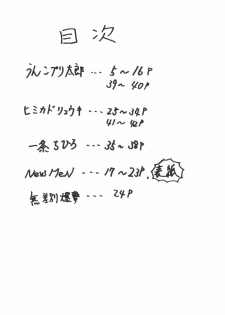 目次
うんこブリ太郎 --- 5～16P
39～40P
ヒミカドリュウキ --- 25～34P
41～42P
一条ちひろ --- 35～38P
NewMeN --- 17～23P, 表紙
無差別爆撃 --- 24P